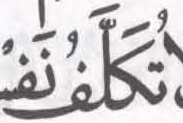 لَا تُكَلَّفُ نَفْس